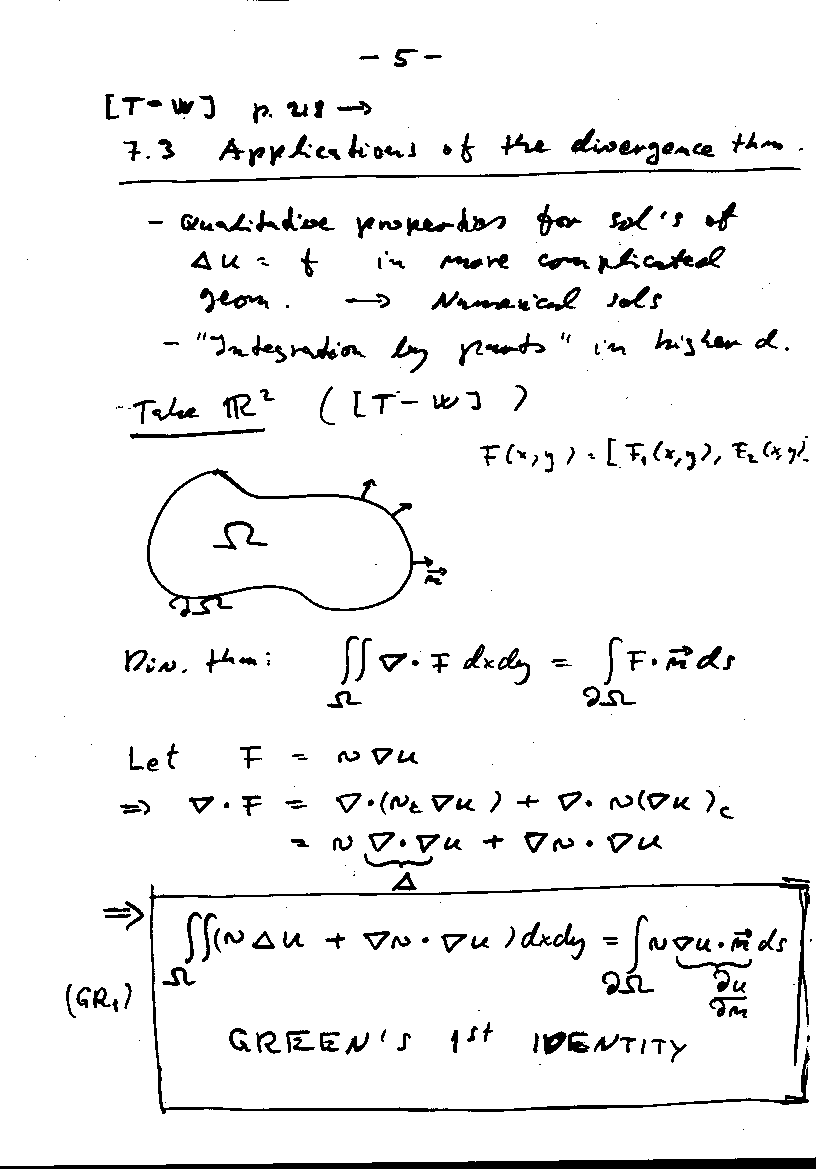 - 5 -
[T-W] p. 218 →
7.3 Applications of the divergence thm.
- Qualitative properties for sol's of
Δu = f in more complicated
geom. → Numerical sols
- "Integration by parts" in higher d.
Take ℝ² ([T-W])
F(x,y) = [F₁(x,y), F₂(x,y)]
Ω
n⃗
∂Ω
Div. thm: ∬_Ω ∇·F dxdy = ∫_∂Ω F·n⃗ ds
Let F = v∇u
⇒ ∇·F = ∇·(v_c ∇u) + ∇·v(∇u)_c
= v ∇·∇u + ∇v·∇u
Δ
⇒ ∬_Ω (vΔu + ∇v·∇u) dxdy = ∫_∂Ω v ∇u·n⃗ ds
(GR₁) ∂u/∂n
GREEN'S 1st IDENTITY